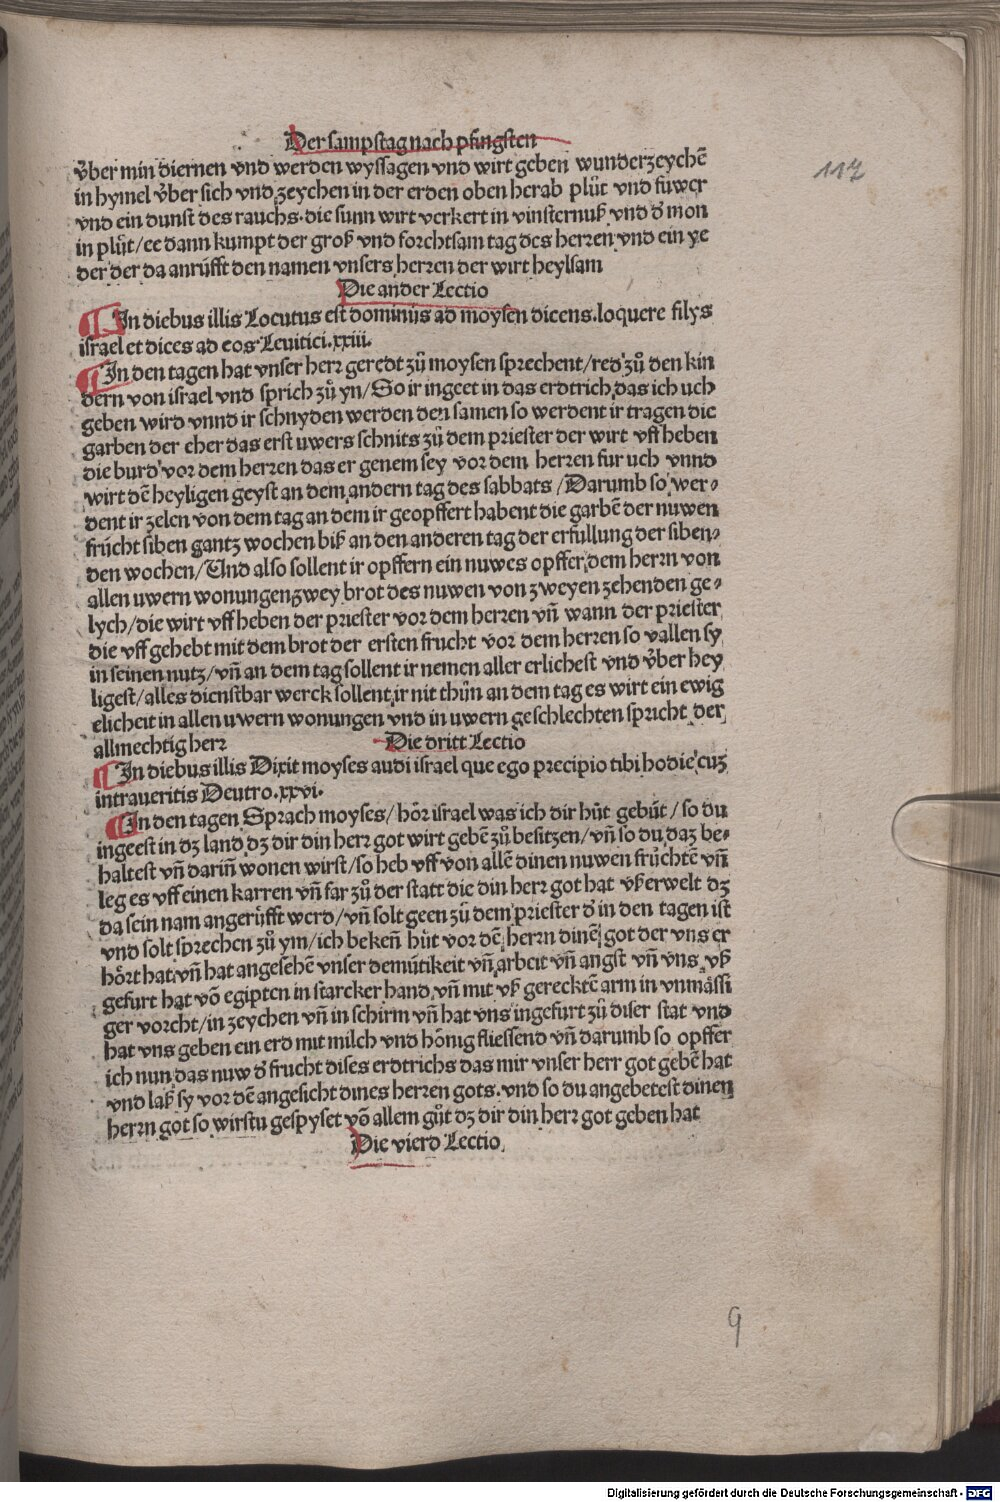 Der sampstag nach pfingsten
117
v̈ber min diernen vnd werden wyssagen vnd wirt geben wunderzeychē
in hymel v̈ber sich vnd zeychen in der erden oben herab plůt vnd fuwer
vnd ein dunst des rauchs. die sunn wirt verkert in vinsternuß vnd d̕ mon
in plůt/ee dann kumpt der groß vnd forchtsam tag des herren vnd ein ye
der der da anrüfft den namen vnsers herren der wirt heylsam
Die ander Lectio
¶ In diebus illis Locutus est dominus ad moysen dicens. loquere filys
israel et dices ad eos Leuitici. xxiii.
¶ In den tagen hat vnser herr geredt zů moysen sprechent/red zů den kin
dern von israel vnd sprich zů yn/So ir ingeet in das erdtrich das ich uch
geben wird vnnd ir schnyden werden den samen so werdent ir tragen die
garben der eher das erst uwers schnits zů dem priester der wirt vff heben
die burd vor dem herren das er genem sey vor dem herren fur uch vnnd
wirt dē heyligen geyst an dem andern tag des sabbats/Darumb so wer-
dent ir zelen von dem tag an dem ir geopffert habent die garbē der nuwen
frücht siben gantz wochen biß an den anderen tag der erfullung der siben-
den wochen/Und also sollent ir opffern ein nuwes opffer dem herrn von
allen uwern wonungen zwey brot des nuwen von zweyen zehenden ge-
lych/die wirt vff heben der priester vor dem herren vn̄ wann der priester
die vff gehebt mit dem brot der ersten frucht vor dem herren so vallen sy
in seinen nutz/vn̄ an dem tag sollent ir nemen aller erlichest vnd v̈ber hey
ligest/alles dienstbar werck sollent ir nit thůn an dem tag es wirt ein ewig
elicheit in allen uwern wonungen vnd in uwern geschlechten spricht der
allmechtig herr
Die dritt Lectio
¶ In diebus illis Dixit moyses audi israel que ego precipio tibi hodie cuʒ
intraueritis Deutro. xxvi.
¶ In den tagen Sprach moyses/hör israel was ich dir hüt gebüt/so du
ingeest in dʒ land dʒ dir din herr got wirt gebē zů besitzen/vn̄ so du daz be-
haltest vn̄ darin̄ wonen wirst/so heb vff von allē dinen nuwen früchtē vn̄
leg es vff einen karren vn̄ far zů der statt die din herr got hat vßerwelt dʒ
da sein nam angerüfft werd/vn̄ solt geen zů dem priester d̕ in den tagen ist
vnd solt sprechen zů ym/ich beken̄ hüt vor dē herrn dinē got der vns er
hört hat vn̄ hat angesehē vnser demütikeit vn̄ arbeit vn̄ angst vn̄ vns vß
gefurt hat vō egipten in starcker hand vn̄ mit vß gerecktē arm in vnmässi
ger vorcht/in zeychen vn̄ in schirm vn̄ hat vns ingefurt zů diser stat vnd
hat vns geben ein erd mit milch vnd hönig fliessend vn̄ darumb so opffer
ich nun das nuw d̕ frucht dises erdtrichs das mir vnser herr got gebē hat
vnd laß sy vor dē angesicht dines herren gots. vnd so du angebetest dinen
herrn got so wirstu gespyset vō allem gůt dʒ dir din herr got geben hat
Die vierd Lectio
9
Digitalisierung gefördert durch die Deutsche Forschungsgemeinschaft - DFG